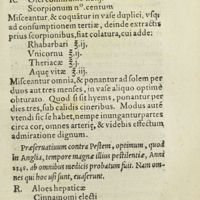 Scorpionum nº. centum
Misceantur, & coquãtur in vase duplici, vsq;
ad consumptionem tertiæ, deinde extractis
prius scorpionibus, fiat colatura, cui adde:
Rhabarbari ℥.ij.
Vnicornu ℥.ij.
Theriacæ ℥.j.
Aquæ vitæ ℥.iij.
Misceantur omnia, & ponantur ad solem per
duos aut tres menses, in vase aliquo optimè
obturato. Quod si sit hyems, ponantur per
dies tres, sub calidis cineribus. Modus autẽ
vtendi sic se habet, nempe inungantur partes
circa cor, omnes arteriæ, & videbis effectum
admiratione dignum.
Præseruatiuum contra Pestem, optimum, quod
in Anglia, tempore magnæ illius pestilentiæ, Anni
1548. ab omnibus medicis probatum fuit. Nam om-
nes qui hoc vsi sunt, euaserunt.
R. Aloes hepaticæ
Cinnamomi electi